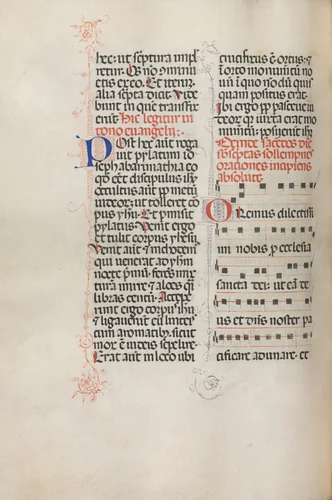 hec: ut scriptura impl
retur. Os nō cōminu
etis ex eo. Et iterum
alia scptra dicit. Vide
bunt in quē transfixe
runt. Hic legitur in
tono evangelii:
Post hec aut roga
uit pylatum io
seph ab arimathia
eo qd eēt discipulus ihu
occultus aut pp metū
iudeor: ut tolleret cor
pus yhu. Et pmisit
pylatus. Venit ergo
et tulit corpus yhesu.
Venit aut & nichodem
qui uenerat ad yhm
nocte pmū: ferēs mix
turā mirre & aloes qsi
libras centū. Accepe
runt ergo corpus yhu
& ligauerūt eū lintei
cum aromatib: sicut
mos ē iudeis sepelire.
Erat aut in loco ubi
crucifixus ē ortus: et
ī orto monumētū no
uū ī quo nōdū quis
quam positus erat.
ibi ergo pp parasceue iu
deor qr iuxta erat mo
numētū: posuerūt ihm
Deinde sacerdos dic
orationes incipiens
absolute.
Oremus dilectissi
mi nobis p ecclesia
sancta dei: ut eā de
us et dn̄s noster pa
cificare adunare et